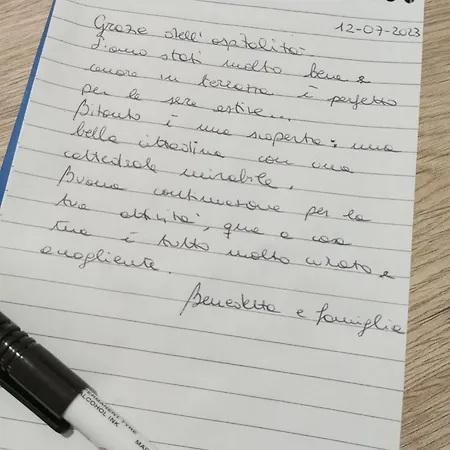 12-07-2023
Grazie dell'ospitalità.
Siamo stati molto bene e
cenare in terrazza è perfetto
per le sere estive...
Bitonto è una scoperta: una
bella cittadina con una
cattedrale mirabile.
Buona continuazione per la
tua attività, qua a casa
tua è tutto molto curato e
accogliente.
Benedetta e famiglia
PERMANENT TYPE
ALCOHOL INK